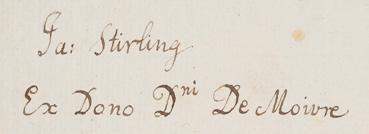 Ja: Stirling
Ex Dono Dⁿⁱ De Moivre